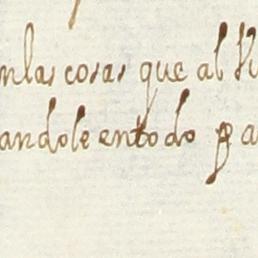 nlas cosas que al
andole entodo p a